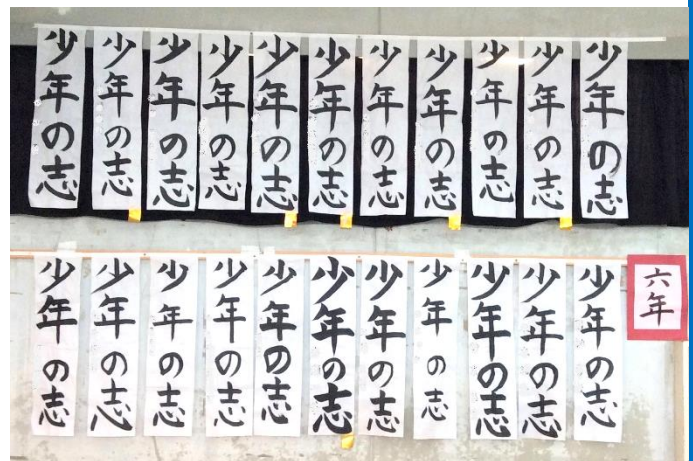 少年の志
少年の志
少年の志
少年の志
少年の志
少年の志
少年の志
少年の志
少年の志
少年の志
少年の志
六年
少年の志
少年の志
少年の志
少年の志
少年の志
少年の志
少年の志
少年の志
少年の志
少年の志
少年の志